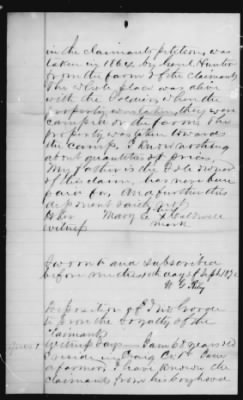 in the claimants petition, was
taken in 1864. by Genl Hunter
from the farm of the claimant
The whole place was alive
with the Soldiers, when the
property was taken, they were
camped on the farm. The
property was taken towards
the camp. I know nothing
about quantities of prices,
My Father is the sole owner
of this claim, has never been
paid for, And further this
deponent saith not
Mary C X Caldwell
witness mark
Sworn to and subscribed
before me this day of Sept 187
Deposition of George
to prove the Loyalty of the
Claimant
Witness says I am 65 years old
I reside in Craig Co Va I am
a farmer, I have known the
claimant from his boyhood